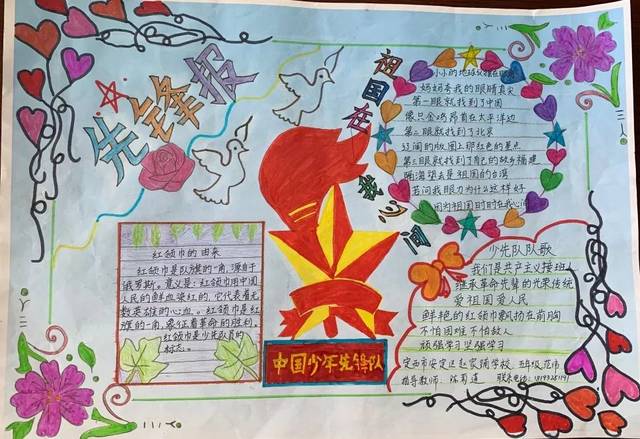 先锋报
祖国在我心间
小小的地球仪摆在眼前
妈妈考我的眼睛真尖
第一眼就找到了中国
像只金鸡昂首在太平洋边
第二眼就找到了北京
辽阔的版图上那红色的星点
第三眼就找到了自己的故乡福建
隔海望去是祖国的台湾
若问我眼力为什么这样好
因为祖国时时在我心间
红领巾的由来
红领巾是队旗的一角,源自于
俄罗斯。意义是:红领巾用中国
人民的鲜血染红的,它代表着无
数英雄的心血。红领巾是红
旗的一角,象征着革命的胜利。
红领巾是少先队员的
标志。
中国少年先锋队
少先队队歌
我们是共产主义接班人
继承革命先辈的光荣传统
爱祖国爱人民
鲜艳的红领巾飘扬在前胸
不怕困难不怕敌人
顽强学习坚强学习
定西市安定区赵家铺学校 五年级
指导教师: 联系电话: